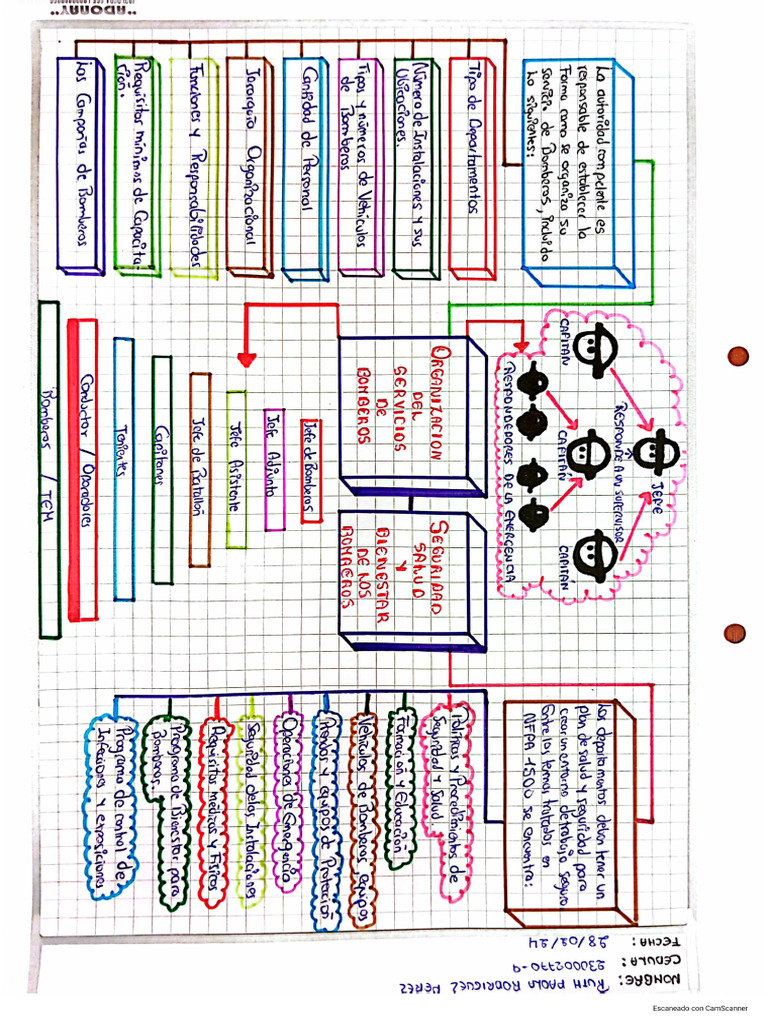 "ADONAY"
NOMBRE: RUTH PAOLA RODRIGUEZ PEREZ
CEDULA: 230002770-9
FECHA: 28/02/24
La autoridad competente es
responsable de establecer la
Forma como se organiza su
servicio de Bomberos, incluido
lo siguientes:
Tipo de Departamentos
Número de Instalaciones y sus
Ubicaciones.
Tipos y números de Vehiculos
de Bomberos
Cantidad de Personal
Jerarquia Organizacional
Funciones y Responsabilidades
Requisitos minimos de Capacita
ción.
Las Compañias de Bomberos
JEFE
RESPONDE A UN SUPERVISOR
CAPITÁN
CAPITÁN
CAPITÁN
RESPONDEDORES DE LA EMERGENCIA
ORGANIZACION
DEL
SERVICIOS
DE
BOMBEROS
SEGURIDAD
SALUD
Y
BIENESTAR
DE LOS
BOMBEROS
Jefe de Bomberos
Jefe Adjunto
Jefe Asistente
Jefe de Batallón
Capitanes
Tenientes
Conductor / Operadores
Bomberos / TEM
Los departamentos deben tener un
plan de salud y seguridad para
crear un entorno de trabajo seguro
Entre los temas tratados en
NFPA 1500 se encuentra:
Politicas y Procedimientos de
Seguridad y Salud.
Formación y Educación
Vehiculos de Bomberos, equipos
Prendas y equipos de Protección
Operaciones de Emergencia
Seguridad de las Instalaciones
Requisitos medicos y Fisicos
Programa de Bienestar para
Bomberos...
Programa de control de
Infecciones y exposiciones
Escaneado con CamScanner